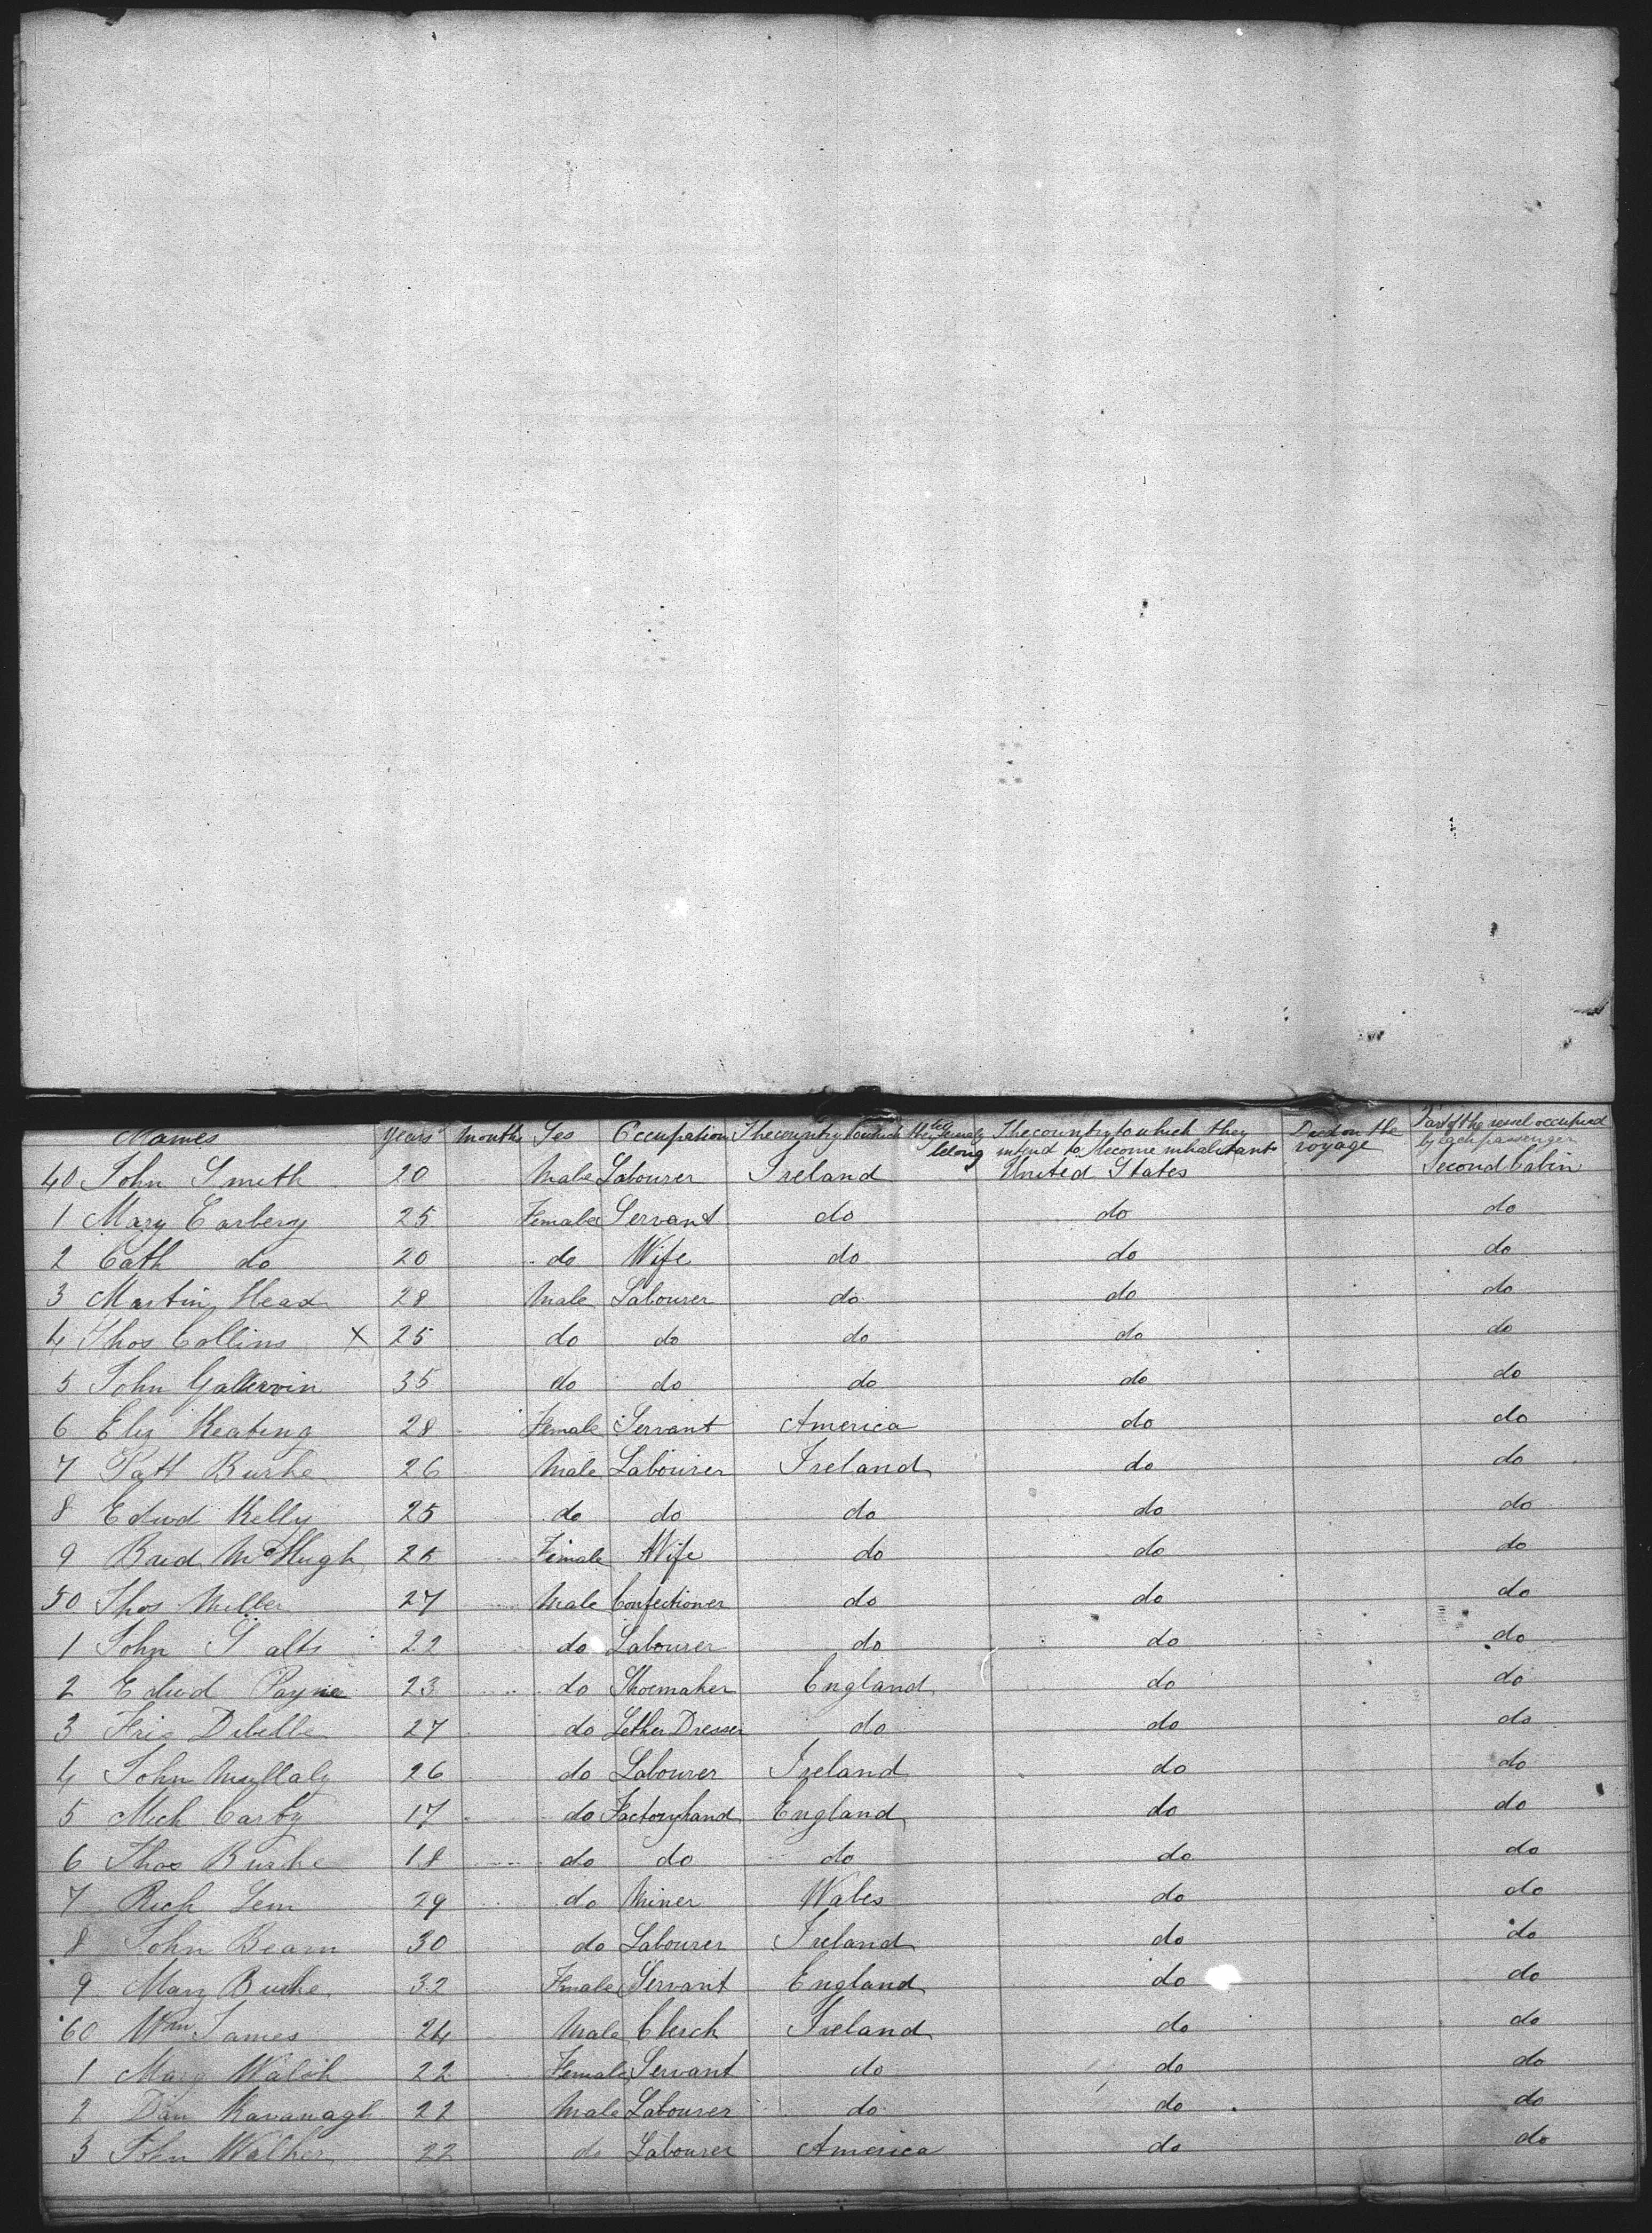 Names Years Months Sex Occupation The country to which they severally belong The country to which they intend to become inhabitants Died on the voyage Part of the vessel occupied by each passenger
40 John Smith 20 Male Labourer Ireland United States Second Cabin
1 Mary Carbery 25 Female Servant do do do
2 Cath do 20 do Wife do do do
3 Martin Head 28 Male Labourer do do do
4 Thos Collins X 25 do do do do do
5 John 35 do do do do do
6 Eliz Keating 28 Female Servant America do do
7 Patt Burke 26 Male Labourer Ireland do do
8 Edwd Kelly 25 do do do do do
9 Brid McHugh 25 Female Wife do do do
50 Thos Miller 27 Male Confectioner do do do
1 John Salts 22 do Labourer do do do
2 Edwd Payne 23 do Shoemaker England do do
3 Dibelle 27 do Lether Dresser do do do
4 John Mullaly 26 do Labourer Ireland do do
5 Mich Carty 17 do Factory hand England do do
6 Thos Burke 18 do do do do do
7 Rich 29 do Miner Wales do do
8 John Bearn 30 do Labourer Ireland do do
9 Mary Burke 32 Female Servant England do do
60 Wm James 24 Male Clerck Ireland do do
1 Mary Walsh 22 Female Servant do do do
2 Dan Kavanagh 22 Male Labourer do do do
3 John Walker 22 do Labourer America do do